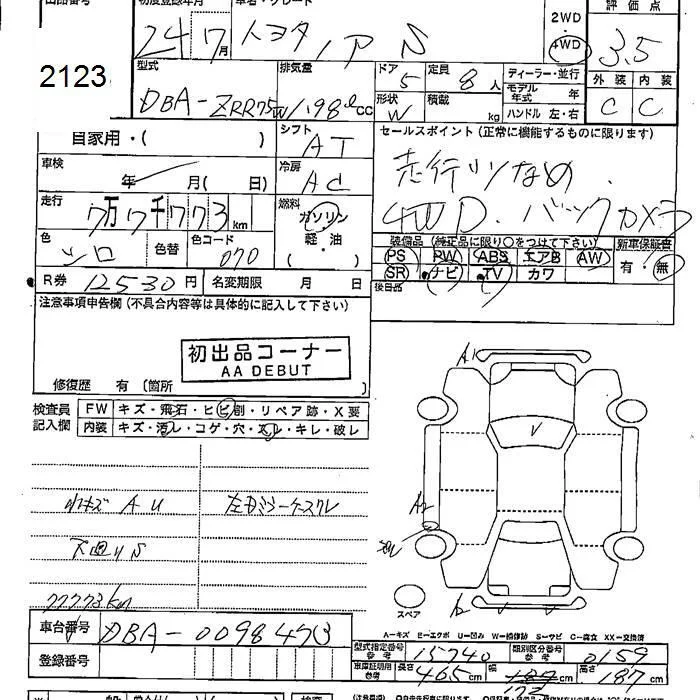 初度登録年月 車名・グレード 評価点
24 7月 トヨタ, 2WD 4WD 3.5
2123
型式 排気量 ドア 5 定員 8人 ディーラー・並行 外装 内装
DBA-ZRR75W 1.98ℓcc 形状 W 積載 kg モデル年式 年 ハンドル 左・右 C C
自家用・( ) シフト AT セールスポイント(正常に機能するものに限ります)
車検 年 月( 日) 冷房 AC 走行少なめ.
走行 7万7千773km 燃料 ガソリン・軽・油 4WD. バックカメラ
色 シロ 色替 色コード 070 装備品(純正品に限り○をつけて下さい) 新車保証書
PS PW ABS エアB AW 有・無
SR ナビ TV カワ
R券 12530円 名変期限 月 日 後日品
注意事項申告欄(不具合内容等は具体的に記入して下さい)
初出品コーナー
AA DEBUT
修復歴 有(箇所 )
検査員記入欄 FW キズ・飛石・ヒビ割・リペア跡・X要
内装 キズ・汚レ・コゲ・穴・スレ・キレ・破レ
A1
V
小キズ A U 左ドミラーケースクレ A2
下廻りS
スペア
77773km
車台番号 DBA-0098473
A−キズ E−エクボ U−凹み W−補修跡 S−サビ C−腐食 XX−交換済
型式指定番号 参考 15740 類別区分番号 参考 0159
登録番号 車庫証明用 参考 長さ 465cm 幅 172 cm 高さ 187cm